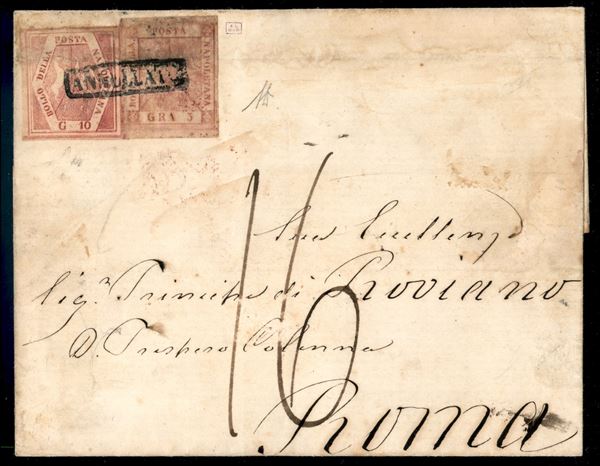 BOLLO DELLA POSTA NAPOLETANA
G. 10
POSTA NAPOLETANA
GRA 5
ANNULLATO
16
Sua Eccellenza
Sig.r Principe di Roviano
D. Prospero Colonna
Roma